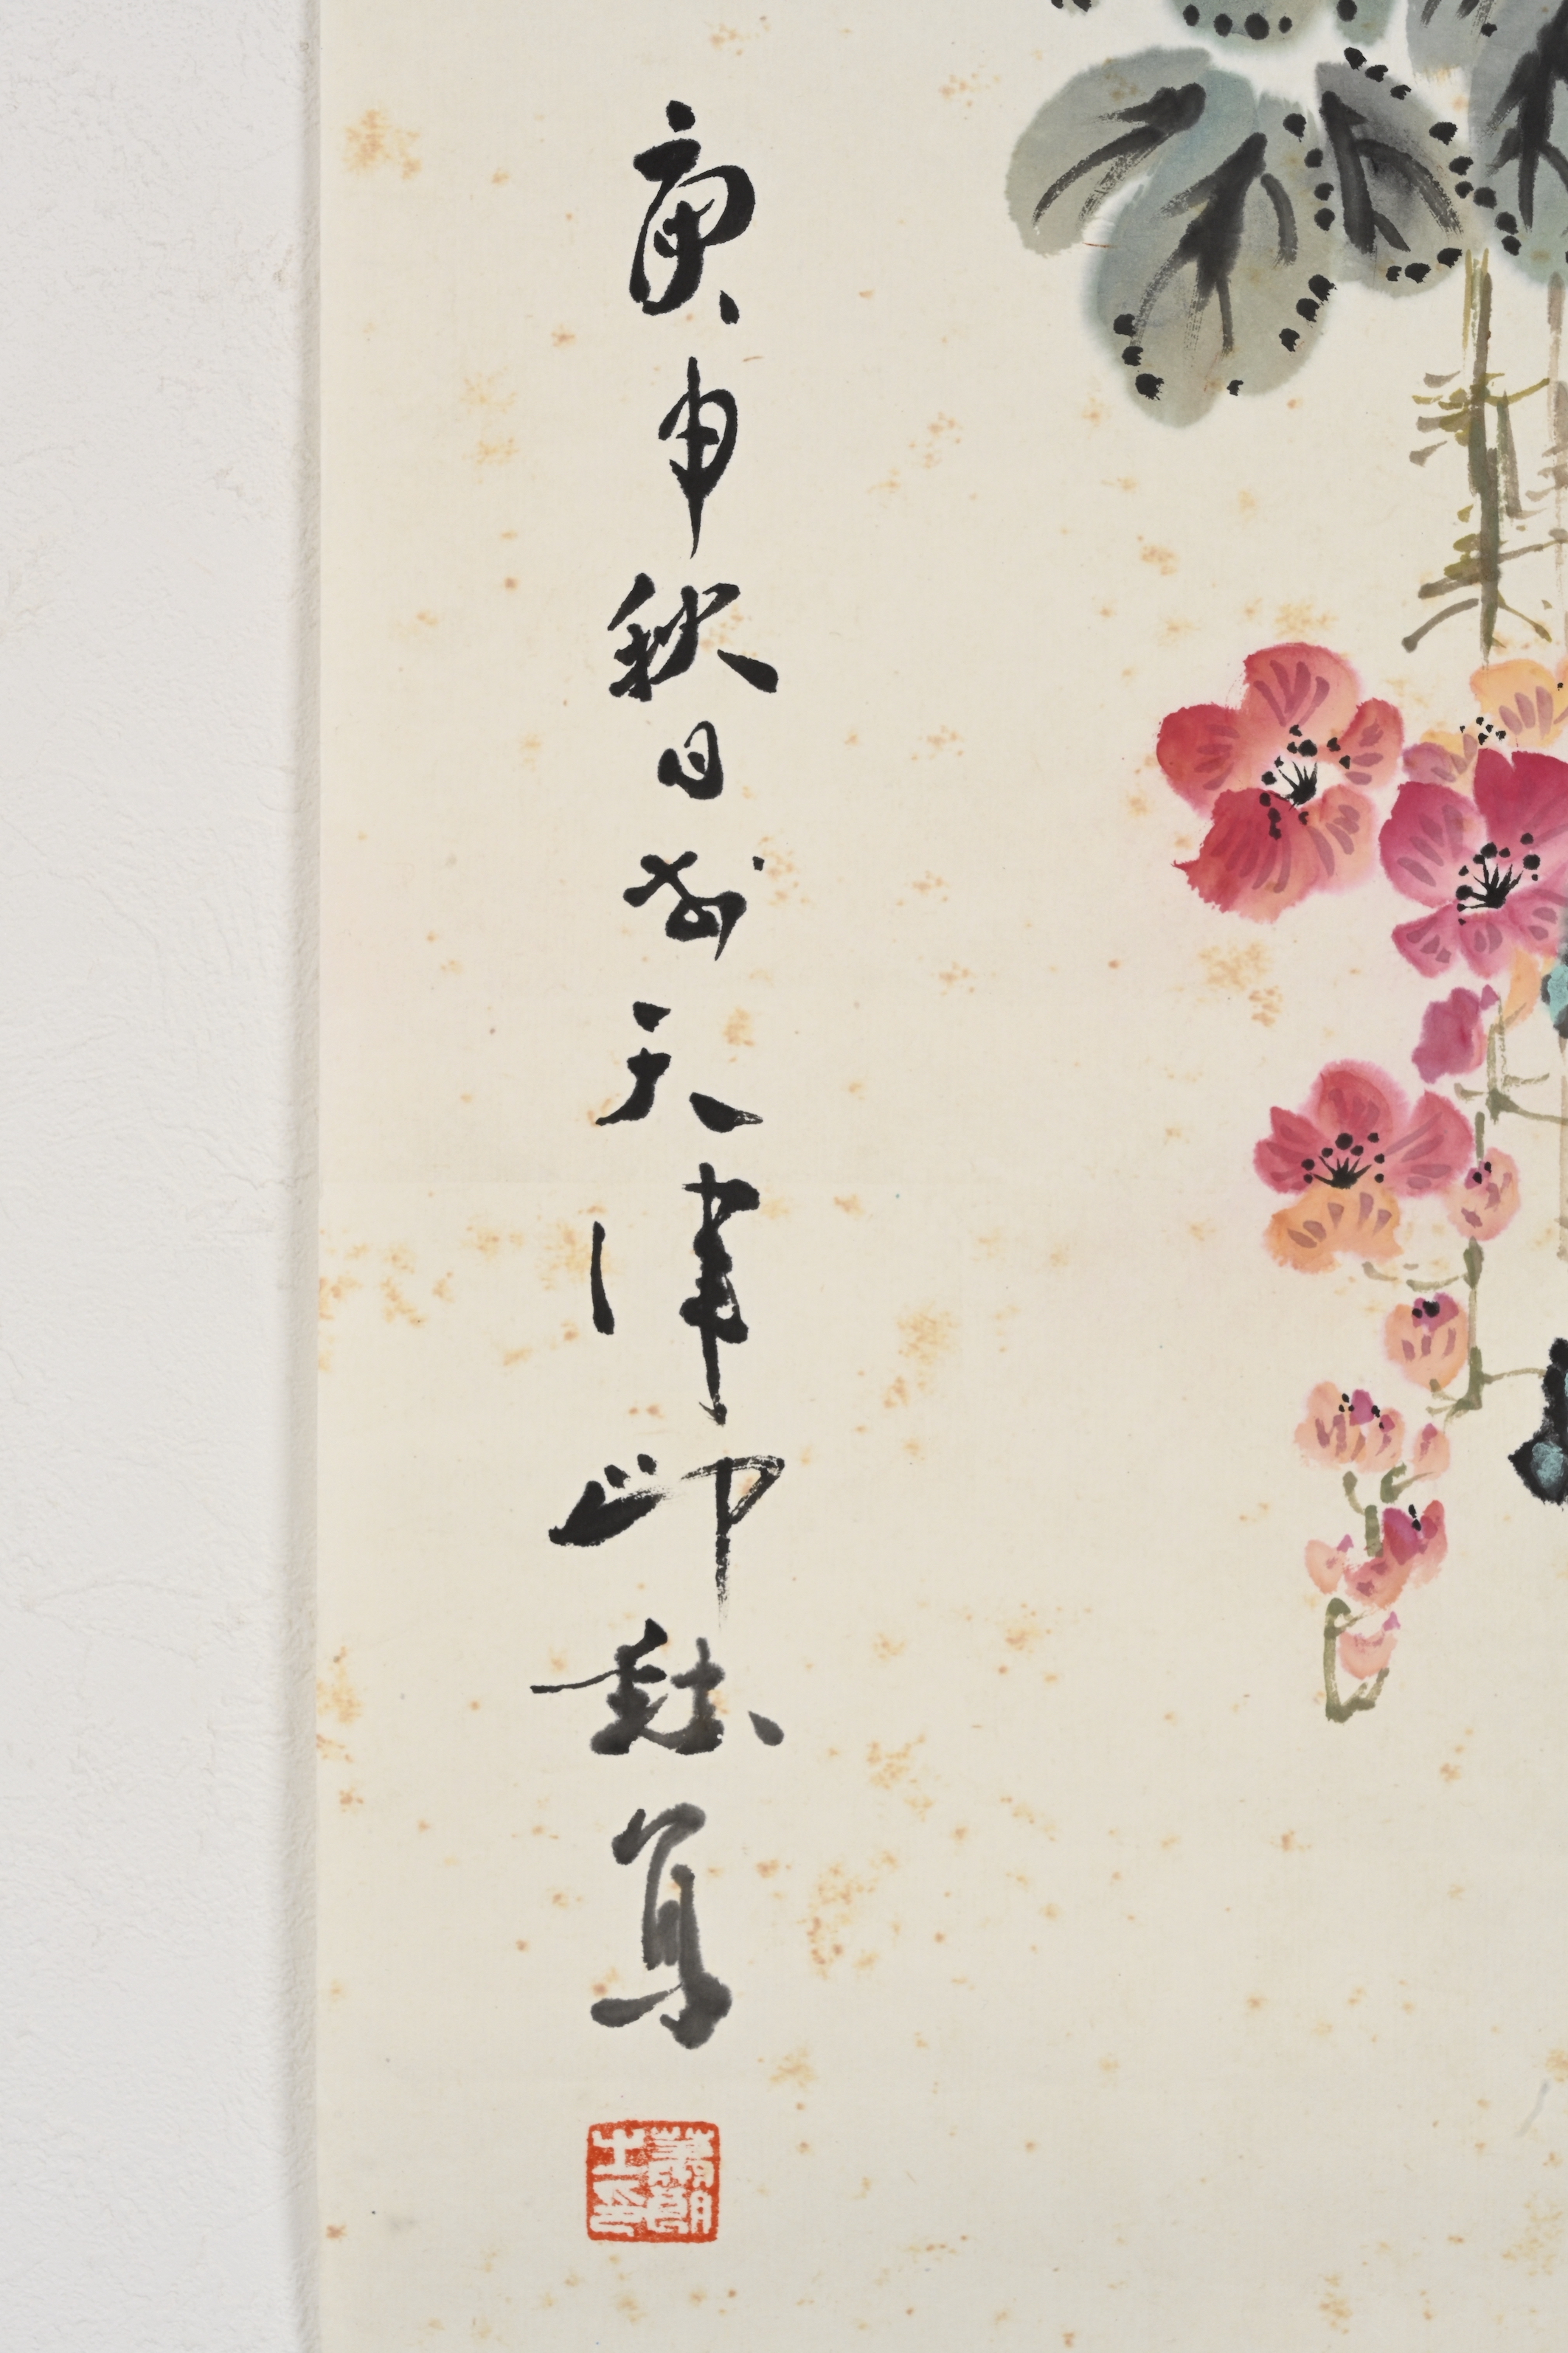 庚申秋日於天津印鉥寫
蕭朗之印